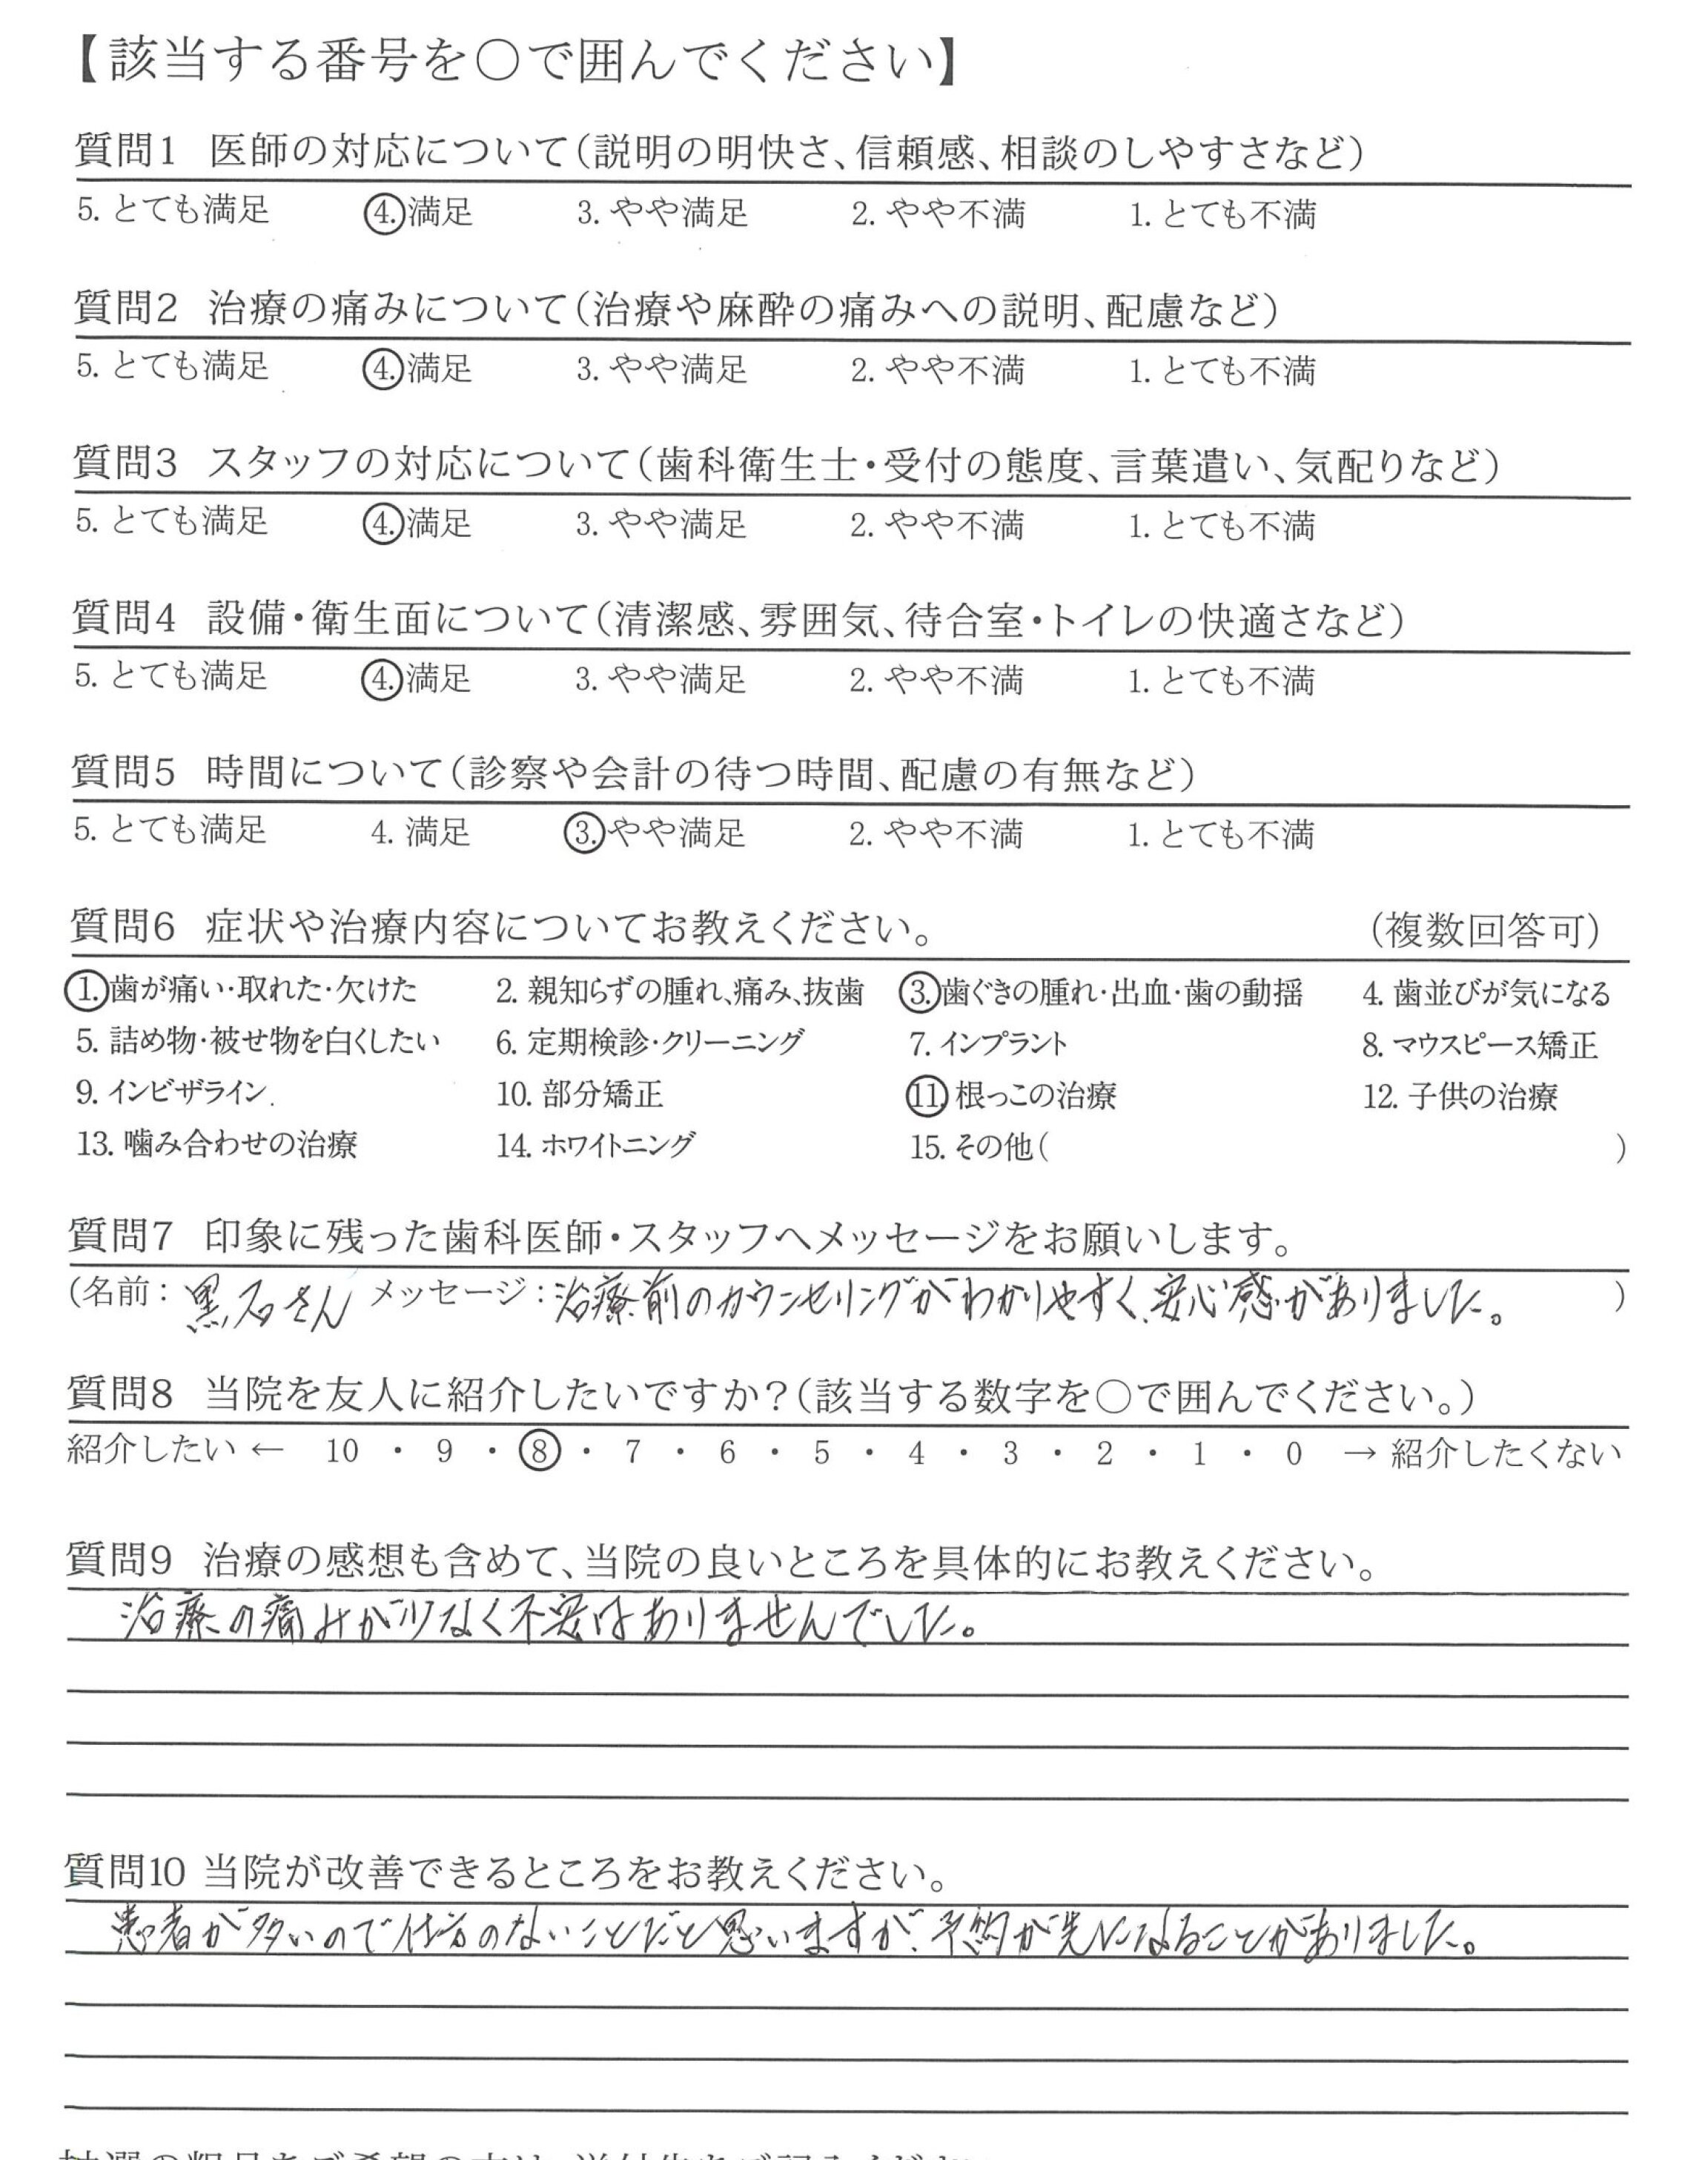 【該当する番号を〇で囲んでください】
質問1 医師の対応について(説明の明快さ、信頼感、相談のしやすさなど)
5. とても満足 4. 満足 3. やや満足 2. やや不満 1. とても不満
質問2 治療の痛みについて(治療や麻酔の痛みへの説明、配慮など)
5. とても満足 4. 満足 3. やや満足 2. やや不満 1. とても不満
質問3 スタッフの対応について(歯科衛生士・受付の態度、言葉遣い、気配りなど)
5. とても満足 4. 満足 3. やや満足 2. やや不満 1. とても不満
質問4 設備・衛生面について(清潔感、雰囲気、待合室・トイレの快適さなど)
5. とても満足 4. 満足 3. やや満足 2. やや不満 1. とても不満
質問5 時間について(診察や会計の待つ時間、配慮の有無など)
5. とても満足 4. 満足 3. やや満足 2. やや不満 1. とても不満
質問6 症状や治療内容についてお教えください。 (複数回答可)
1. 歯が痛い・取れた・欠けた 2. 親知らずの腫れ、痛み、抜歯 3. 歯ぐきの腫れ・出血・歯の動揺 4. 歯並びが気になる
5. 詰め物・被せ物を白くしたい 6. 定期検診・クリーニング 7. インプラント 8. マウスピース矯正
9. インビザライン 10. 部分矯正 11. 根っこの治療 12. 子供の治療
13. 噛み合わせの治療 14. ホワイトニング 15. その他( )
質問7 印象に残った歯科医師・スタッフへメッセージをお願いします。
(名前: 黒石さん メッセージ: 治療前のカウンセリングがわかりやすく、安心感がありました。 )
質問8 当院を友人に紹介したいですか?(該当する数字を〇で囲んでください。)
紹介したい ← 10 ・ 9 ・ 8 ・ 7 ・ 6 ・ 5 ・ 4 ・ 3 ・ 2 ・ 1 ・ 0 → 紹介したくない
質問9 治療の感想も含めて、当院の良いところを具体的にお教えください。
治療の痛みが少なく不安はありませんでした。
質問10 当院が改善できるところをお教えください。
患者が多いので仕方のないことだと思いますが、予約が先になることがありました。